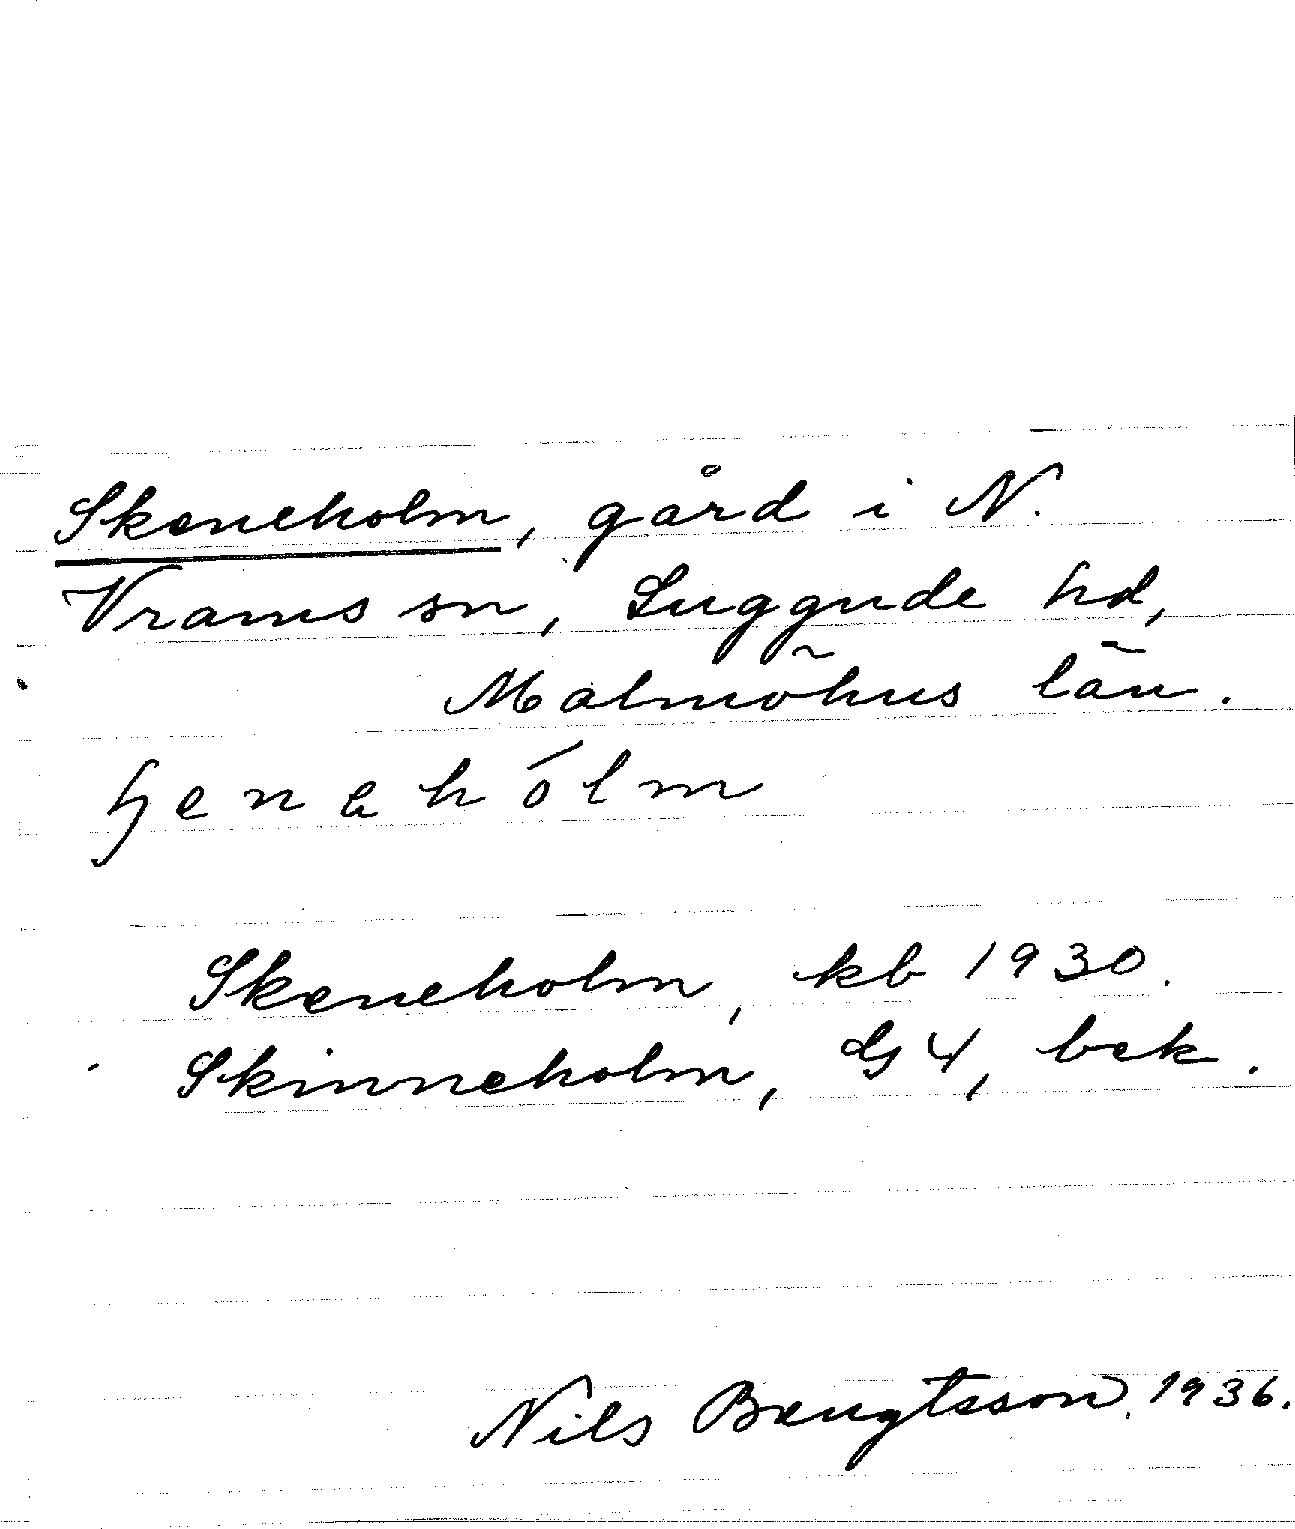 Skeneholm, gård i N.
Vrams sn, Luggude hd,
Malmöhus län.
ɧenəhólm
Skeneholm, kb 1930.
Skinneholm, G4, bek.
Nils Bengtsson, 1936.